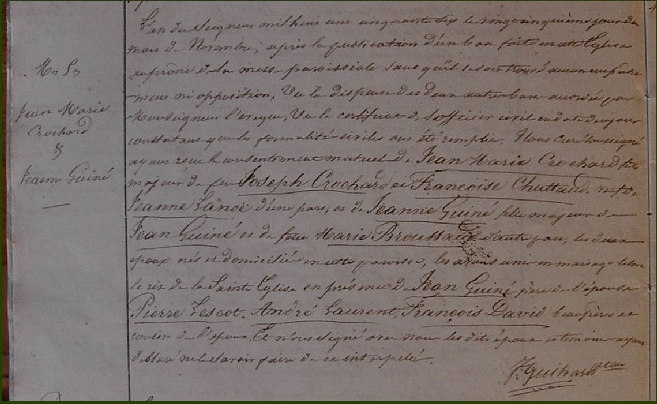 Jean Marie
Crochard
&
Jeanne Guiné
L'an du Seigneur mil huit cent cinquante dix le vingt cinquième jour du
mois de Novembre, après la publication d'un ban faite en cette Eglise
au prône de la messe paroissiale sans qu'il se soit trouvé aucun empêche
ment ni opposition, Vu la dispense des deux autres bans accordée par
Monseigneur l'évêque, Vu le certificat de l'officier civil en date de ce jour
constatant que les formalités civiles ont été remplies. Nous Curé soussigné
ayant reçu le consentement mutuel de Jean Marie Crochard fils
majeur de feu Joseph Crochard et Françoise Chottard, veuf de
Jeanne d'une part, et de Jeanne Guiné fille majeure de
Jean Guiné et de feue Marie d'autre part, les deux
époux nés et domiciliés en cette paroisse, les avons unis en mariage selon
le rit de la Sainte Eglise en présence de Jean Guiné père de l'épouse
Pierre Lescot, André Laurent, François David beau frère et
cousin de l'époux Et n'ont signé avec nous les dits époux et témoins ayant
déclaré ne le savoir faire de ce interpelés.
J. Guihard